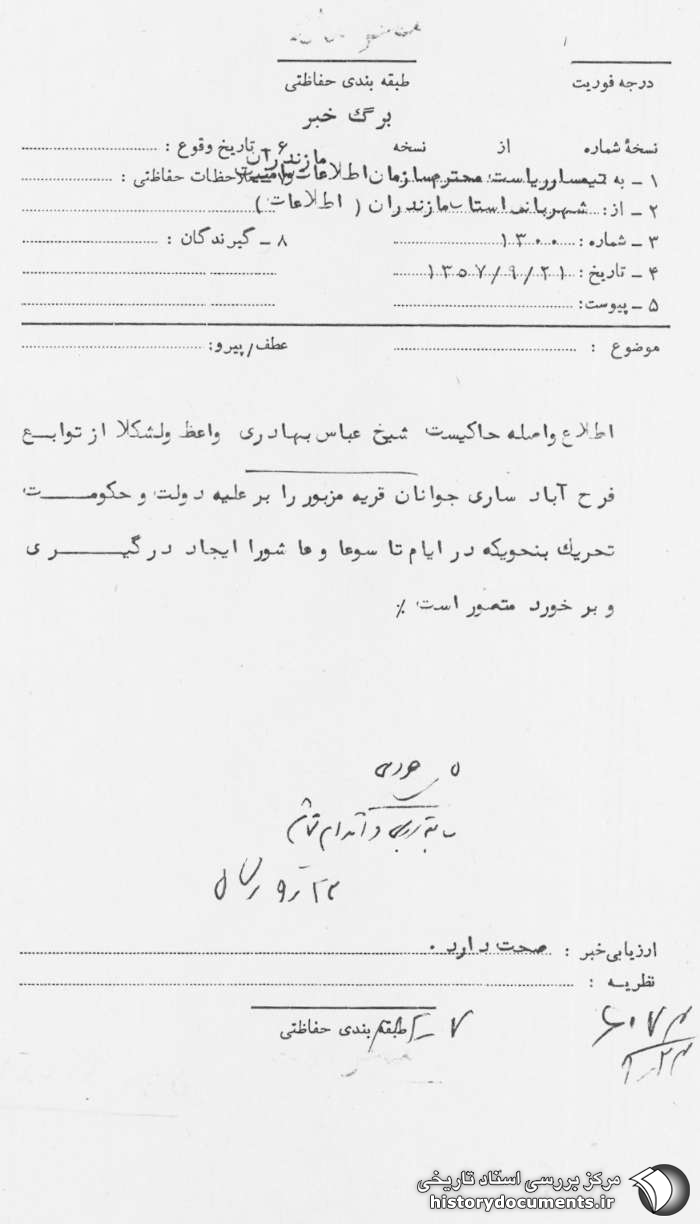 درجه فوریت
طبقه بندی حفاظتی
برگ خبر
نسخهٔ شماره از نسخه
۶ ـ تاریخ وقوع :
۱ ـ به تیمسار ریاست محترم سازمان اطلاعات و امنیت مازندران
ملاحظات حفاظتی :
۲ ـ از: شهربانی استان مازندران ( اطلاعات )
۳ ـ شماره : ۱۳۰۰
۸ ـ گیرندگان :
۴ ـ تاریخ : ۱۳۵۷/۹/۲۱
۵ ـ پیوست:
موضوع :
عطف/پیرو:
اطلاع واصله حاکیست شیخ عباس بهادری واعظ ولشکلا از توابع
فرح آباد ساری جوانان قریه مزبور را بر علیه دولت و حکومت
تحریك بنحویکه در ایام تاسوعا و عاشورا ایجاد درگیری
و برخورد متصور است ٪
ارزیابی خبر : صحت دارد .
نظریه :
طبقه بندی حفاظتی
مرکز بررسی اسناد تاریخی
historydocuments.ir